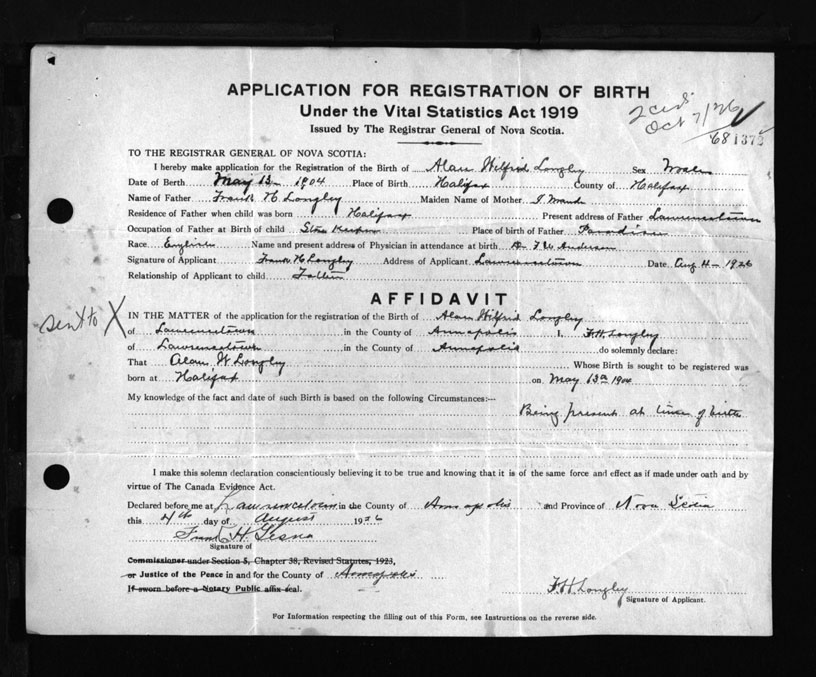 APPLICATION FOR REGISTRATION OF BIRTH
Under the Vital Statistics Act 1919
Issued by The Registrar General of Nova Scotia.
Oct 7/26
681372
TO THE REGISTRAR GENERAL OF NOVA SCOTIA:
I hereby make application for the Registration of the Birth of Alan Wilfrid Longley Sex Male
Date of Berth May 13 1904 Place of Birth Halifax County of Halifax
Name of Father Frank H Longley Maiden Name of Mother
Residence of Father when child was born Halifax Present address of Father Lawrencetown
Occupation of Father at Birth of child Store Keeper Place of birth of Father Paradise
Race English Name and present address of Physician in attendance at birth Dr F. W. Anderson
Signature of Applicant Frank H Longley Address of Applicant Lawrencetown Date Aug 4 1926
Relationship of Applicant to child Father
AFFIDAVIT
sent to X
IN THE MATTER of the application for the registration of the Birth of Alan Wilfrid Longley
of Lawrencetown in the County of Annapolis I, F. H. Longley
of Lawrencetown in the County of Annapolis do solemnly declare:
That Alan W Longley Whose Birth is sought to be registered was
born at Halifax on May 13th 1904
My knowledge of the fact and date of such Birth is based on the following Circumstances:—
Being present at time of birth
I make this solemn declaration conscientiously believing it to be true and knowing that it is of the same force and effect as if made under oath and by
virtue of The Canada Evidence Act.
Declared before me at Lawrencetown in the County of Annapolis and Province of Nova Scotia
this 4th day of August 1926
Frank H.
Signature of
Commissioner under Section 5, Chapter 38, Revised Statutes, 1923,
or Justice of the Peace in and for the County of Annapolis
If sworn before a Notary Public affix seal.
F. H. Longley
Signature of Applicant.
For Information respecting the filling out of this Form, see Instructions on the reverse side.